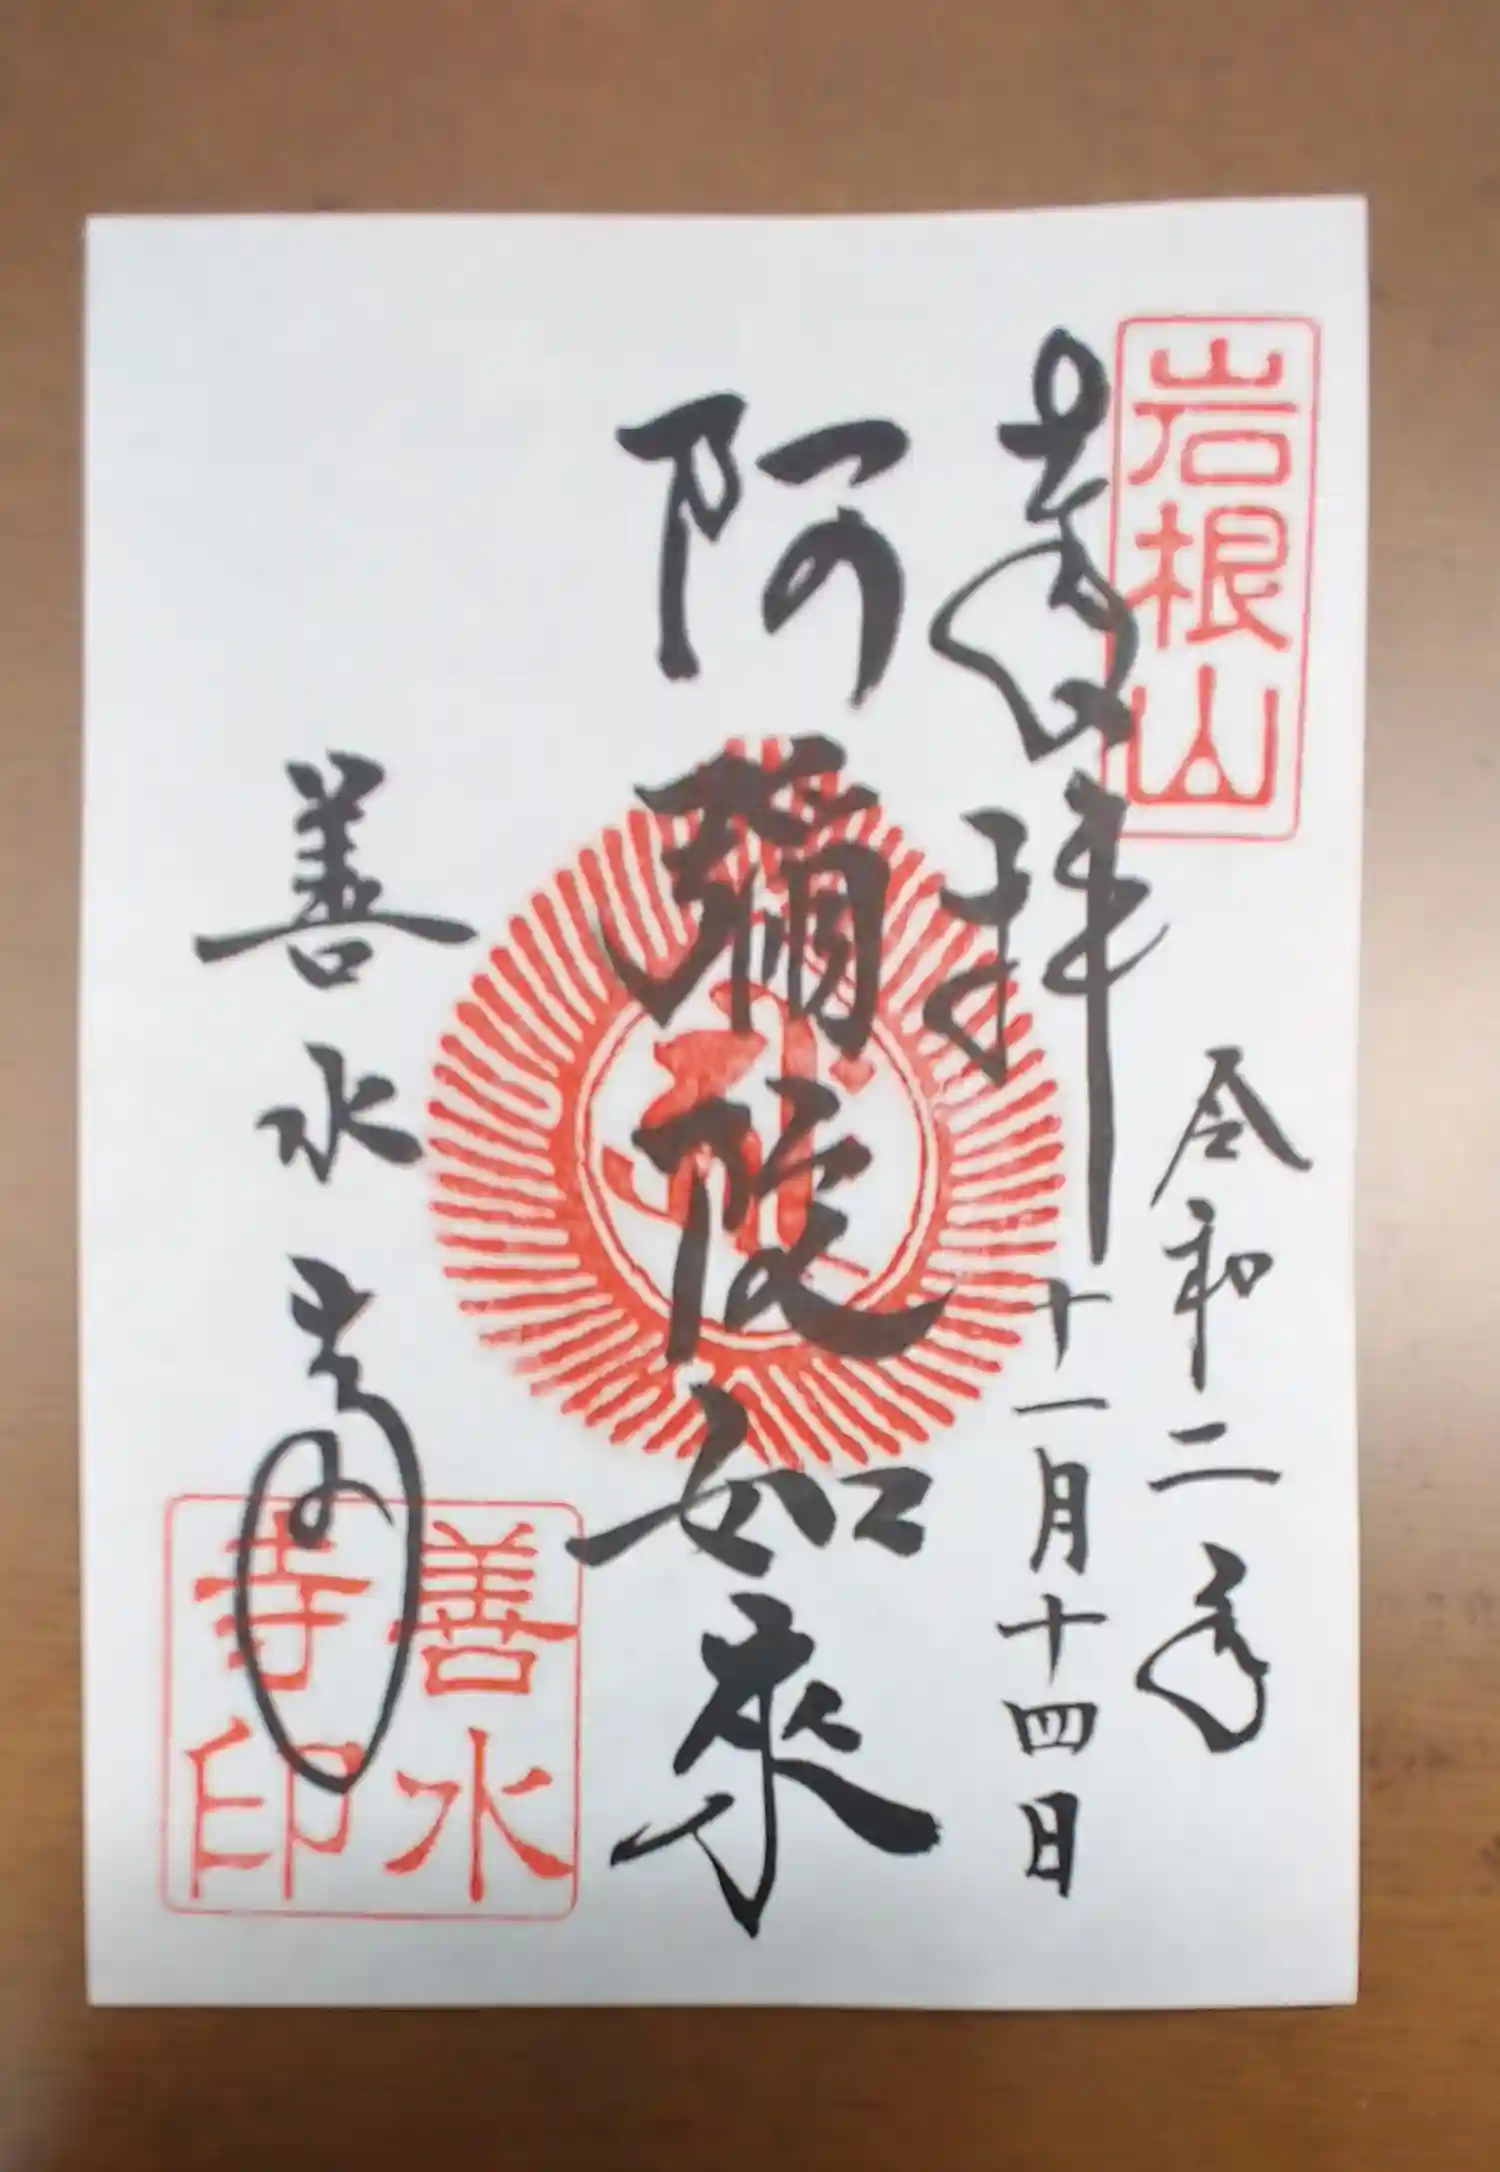 岩根山
奉拝
令和二年
十一月十四日
阿彌陀如来
善水寺
善水
寺印